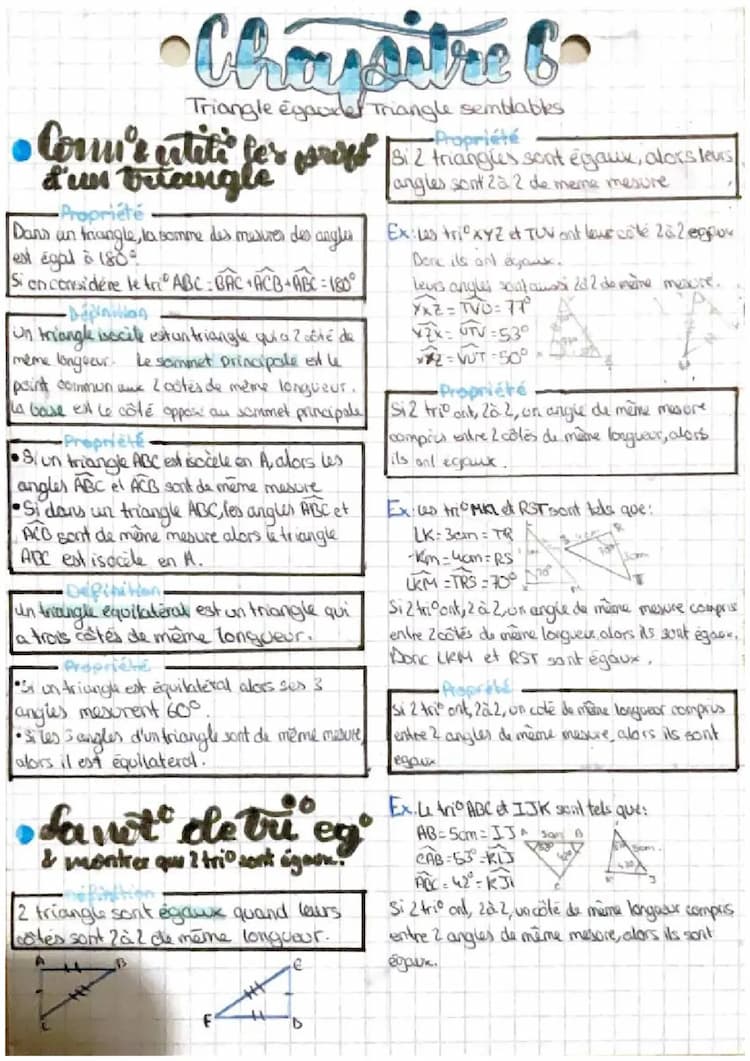 Chapitre 6
Triangle égaux et Triangle semblables
Conn° & utili° les prop°
d'un triangle
Propriété
Dans un triangle, la somme des mesures des angles
est égal à 180°
Si on considère le tri° ABC = BAC + ACB + ABC = 180°
Définition
Un triangle isocèle est un triangle qui a 2 côté de
même longueur. Le sommet principale est le
point commun aux 2 côtés de même longueur.
La base est le côté opposé au sommet principale
Propriété
• Si un triangle ABC est isocèle en A, alors les
angles ABC et ACB sont de même mesure
• Si dans un triangle ABC, les angles ABC et
ACB sont de même mesure alors le triangle
ABC est isocèle en A.
Définition
Un triangle équilatéral est un triangle qui
a trois côtés de même longueur.
Propriété
• Si un triangle est équilatéral alors ses 3
angles mesurent 60°.
• Si les 3 angles d'un triangle sont de même mesure,
alors il est équilatéral.
La not° de tri° eg°
& montrer que 2 tri° sont égaux.
Définition
2 triangle sont égaux quand leurs
côtés sont 2 à 2 de même longueur.
A B
C
E
F D
Propriété
Si 2 triangles sont égaux, alors leurs
angles sont 2 à 2 de meme mesure
Ex: Les tri° XYZ et TUV ont leur côté 2 à 2 egaux
Donc ils ont égaux.
Leurs angles sont aussi 2 à 2 de même mesure.
YXZ = TVU = 77°
YZX = UTV = 53°
= VUT = 50°
Propriété
Si 2 tri° ont, 2 à 2, un angle de même mesure
compris entre 2 côtés de même longueur, alors
ils ont egaux.
Ex: Les tri° MKL et RST sont tels que:
LK = 3cm = TR
Km = 4cm = RS
LKM = TRS = 70°
70°
4cm R
3cm
M
Si 2 tri° ont, 2 à 2, un angle de même mesure compris
entre 2 côtés de même longueur, alors ils sont égaux.
Donc LKM et RST sont égaux.
Propriété
Si 2 tri° ont, 2 à 2, un coté de même longueur compris
entre 2 angles de même mesure, alors ils sont
egaux
Ex: Le tri° ABC et IJK sont tels que:
AB = 5cm = IJ
CAB = 53° = KIJ
ABC = 42° = KJI
A 5cm B
42°
C
5cm
42°
K J
Si 2 tri° ont, 2 à 2, un côté de même longueur compris
entre 2 angles de même mesure, alors ils sont
égaux.